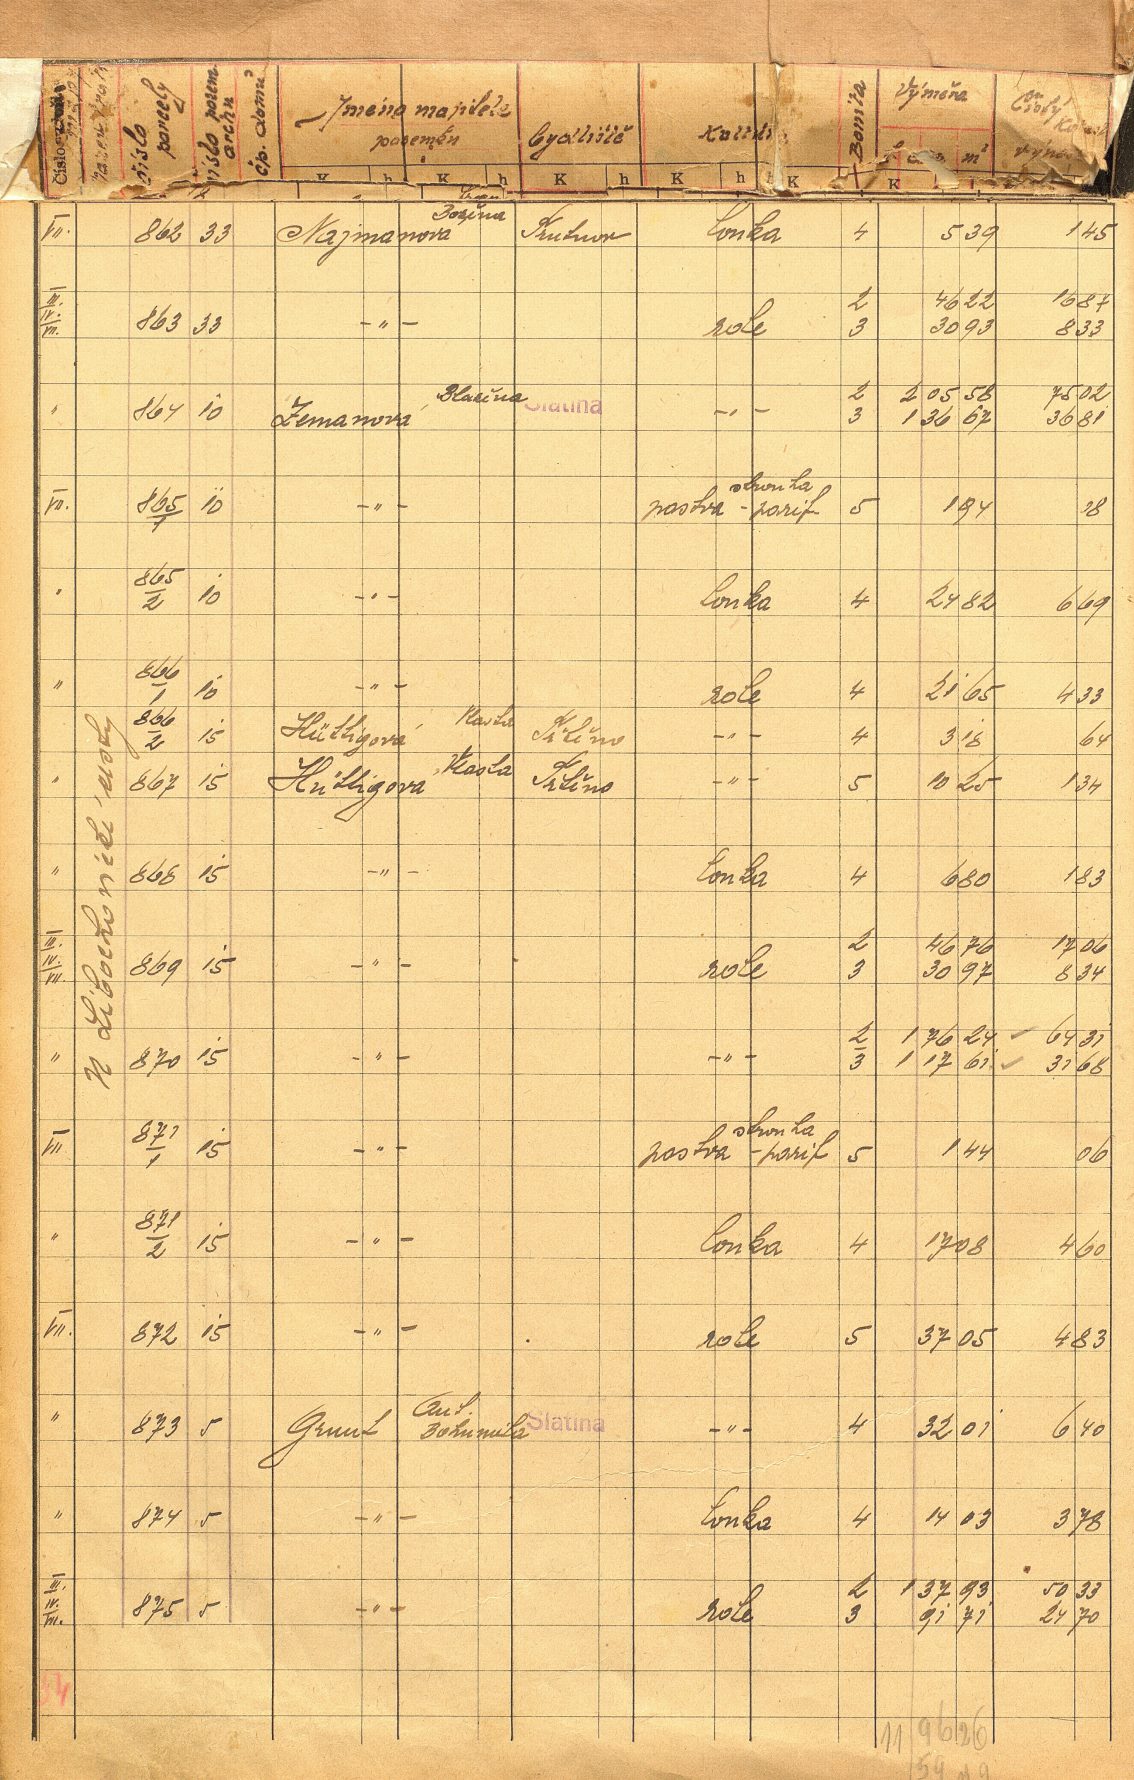 číslo parcely
číslo pozem. archu
čp. domu
Jména majitele pozemku
bydliště
Kultura
Bonita
Výměra
m²
Čistý
K h K h K h K h K K
VII. 862 33 Najmanová Božena Trutnov louka 4 5 39 1 45
III. IV. VII. 863 33 -"- role 2 46 22 16 87
3 30 93 8 33
" 864 10 Zemanová Blažena Slatina -"- 2 2 05 58 75 02
3 1 36 67 36 81
VII. 865/1 10 -"- pastva stromka - parif 5 1 94 18
" 865/2 10 -"- louka 4 24 82 6 69
" 866/1 10 -"- role 4 21 65 4 33
866/2 15 Hüttigová Vlasta -"- 4 3 18 64
" 867 15 Hüttigová Vlasta -"- 5 10 25 1 34
" 868 15 -"- louka 4 6 80 1 83
III. IV. VII. 869 15 -"- role 2 46 76 17 06
3 30 97 8 34
" 870 15 -"- -"- 2 1 76 24 64 31
3 1 17 61 31 68
VII 871/1 15 -"- pastva stromka - parif 5 1 44 06
" 871/2 15 -"- louka 4 17 08 4 60
VII. 872 15 -"- role 5 37 05 4 83
" 873 5 Grunt Ant. Bohumila Slatina -"- 4 32 01 6 40
" 874 5 -"- louka 4 14 03 3 78
III. IV. VII. 875 5 -"- role 2 1 37 93 50 33
3 91 71 24 70
34
11 96 26